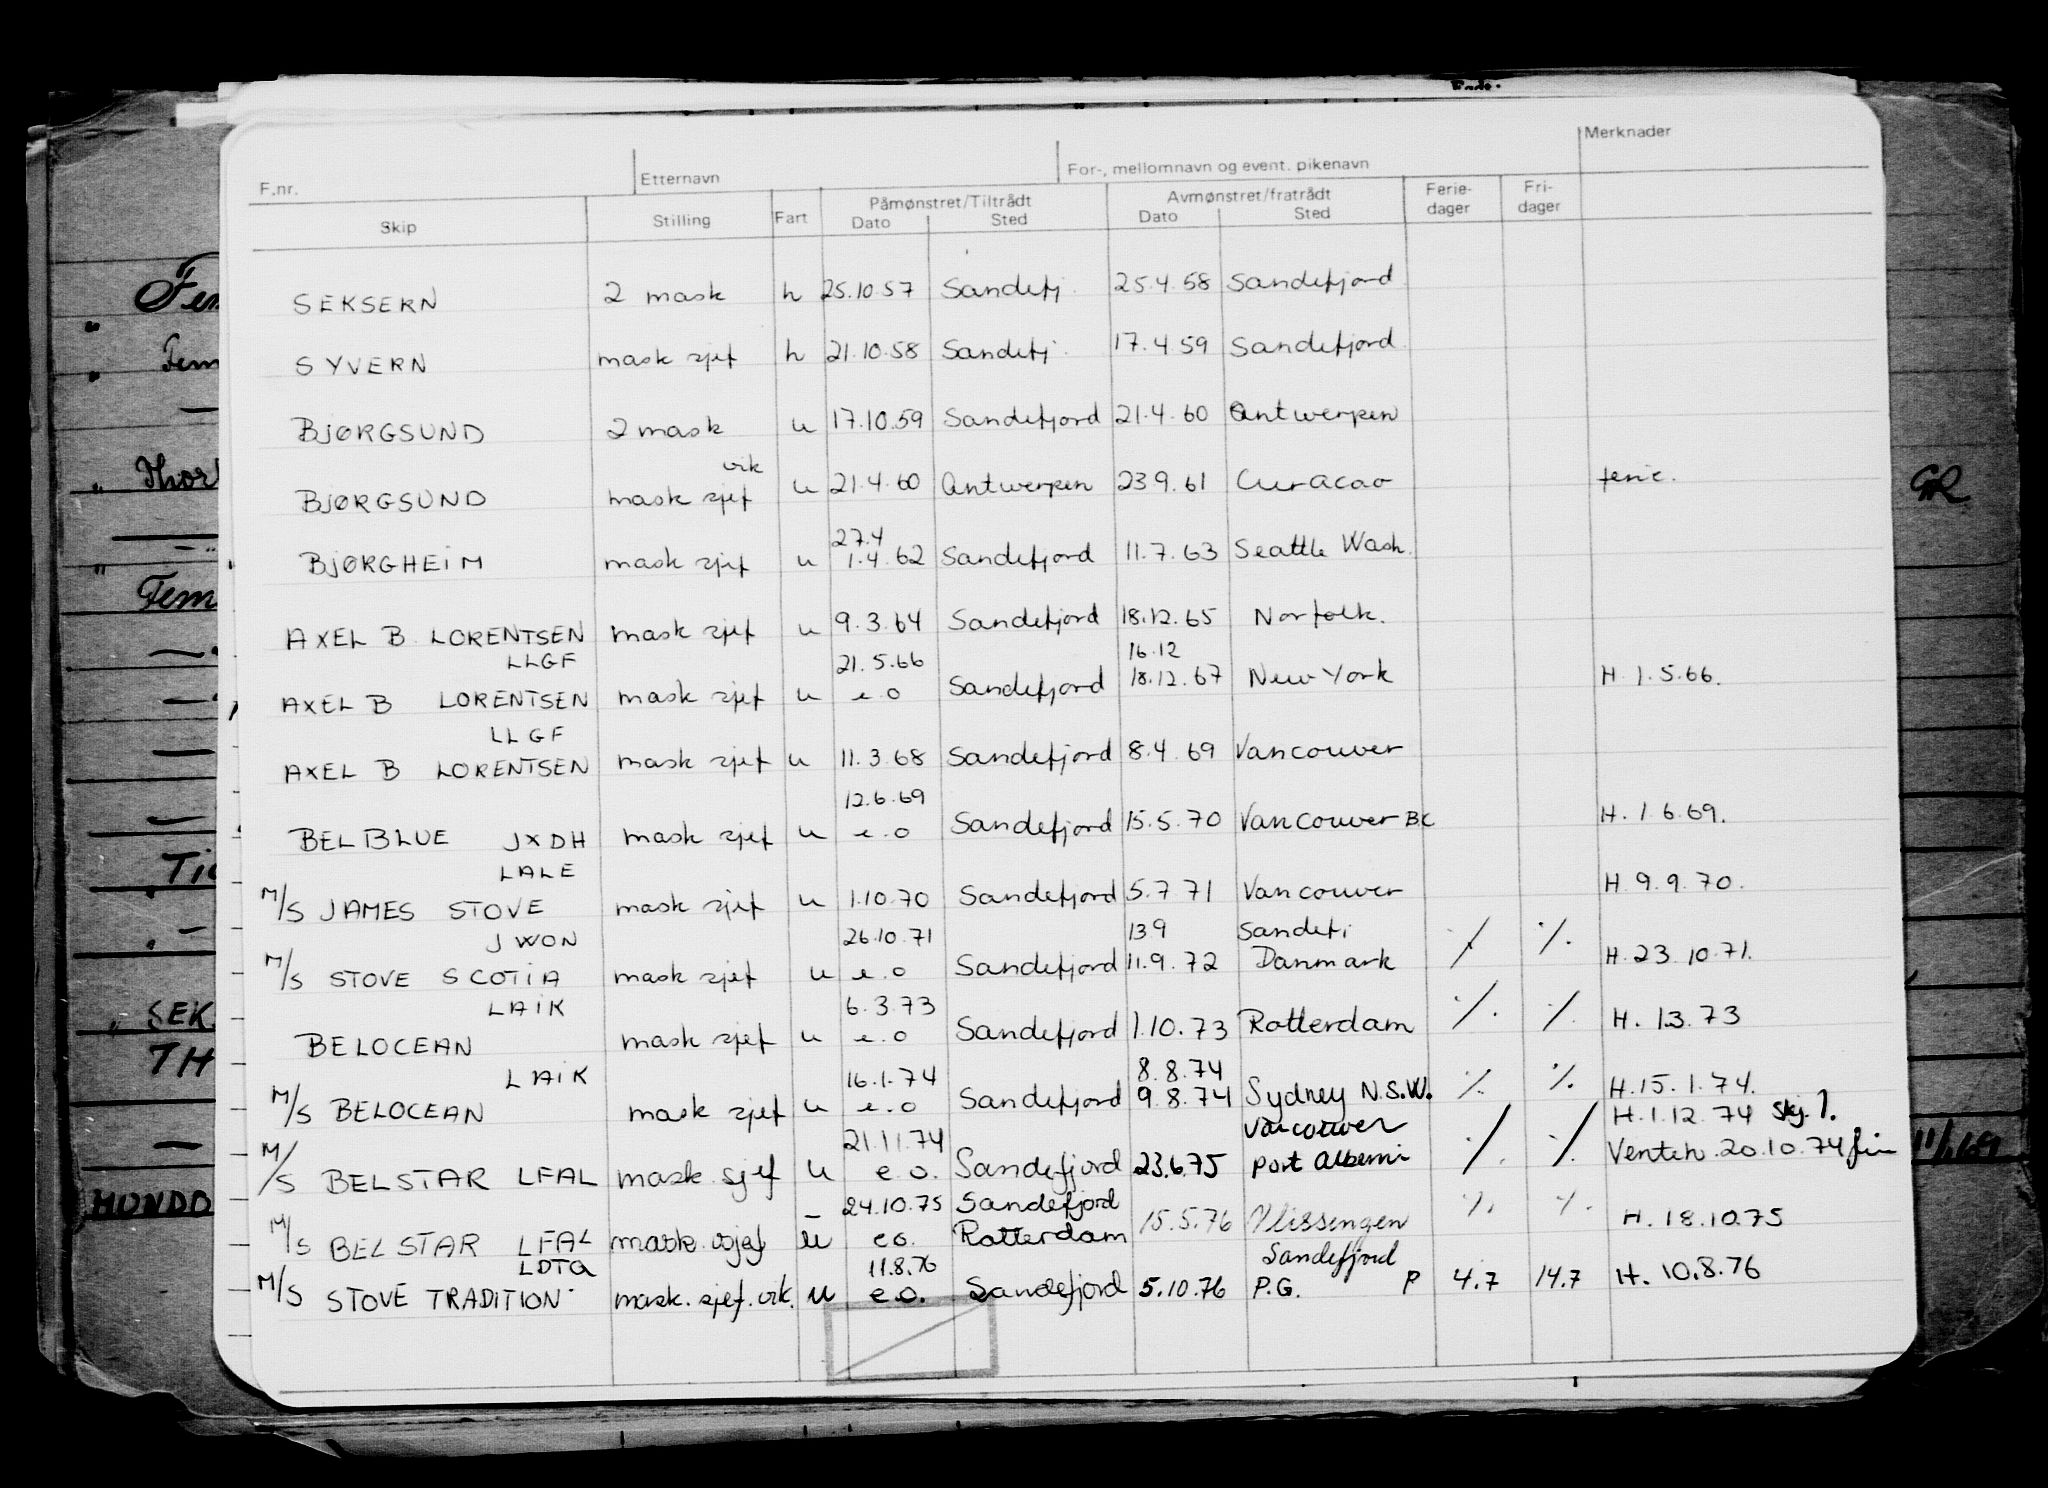 F.nr. Etternavn For-, mellomnavn og event. pikenavn Merknader
Skip Stilling Fart Påmønstret/Tiltrådt Dato Sted Avmønstret/fratrådt Dato Sted Ferie-dager Fri-dager
SEKSERN 2 mask h 25.10.57 Sandefj. 25.4.58 Sandefjord
SYVERN mask sjef h 21.10.58 Sandefj. 17.4.59 Sandefjord
BJØRGSUND 2 mask u 17.10.59 Sandefjord 21.4.60 Antwerpen
vik
BJØRGSUND mask sjef u 21.4.60 Antwerpen 23 9.61 Curacao ferie.
27.4
BJØRGHEIM mask sjef u 1.4.62 Sandefjord 11.7.63 Seattle Wash.
AXEL B LORENTSEN mask sjef u 9.3.64 Sandefjord 18.12.65 Norfolk.
LLGF 21.5.66 16.12
AXEL B LORENTSEN mask sjef u e.o Sandefjord 18.12.67 New York H. 1.5.66.
LLGF
AXEL B LORENTSEN mask sjef u 11.3.68 Sandefjord 8.4.69 Vancouver
12.6.69
BELBLUE JXDH mask sjef u e.o Sandefjord 15.5.70 Vancouver BC H. 1.6.69.
LALE
M/S JAMES STOVE mask sjef u 1.10.70 Sandefjord 5.7.71 Vancouver H.9.9.70.
JWON 26.10.71 13 9 Sandefj
M/S STOVE SCOTIA mask sjef u e.o Sandefjord 11.9.72 Danmark ./. ./. H.23.10.71.
LAIK 6.3.73
BELOCEAN mask sjef u e.o Sandefjord 1.10.73 Rotterdam ./. ./. H. 1.3.73
LAIK 16.1.74 8.8.74
M/S BELOCEAN mask sjef u e.o Sandefjord 9.8.74 Sydney N.S.W. ./. ./. H.15.1.74.
21.11.74 Vancouver H.1.12.74 Skj. 1.
M/S BELSTAR LFAL mask sjef u e.o. Sandefjord 23.6.75 Port Alberni ./. ./. Venteh. 20.10.74
24.10.75 Sandefjord
M/S BELSTAR LFAL mask. sjef u e.o. Rotterdam 15.5.76 Vlissingen ./. ./. H. 18.10.75
LDTQ 11.8.76 Sandefjord
M/S STOVE TRADITION mask. sjef. vik. u e.o. Sandefjord 5.10.76 P.G. P 4.7 14.7 H. 10.8.76
Fem
Thor
GR
Fem
SEK
TH
HUNDD